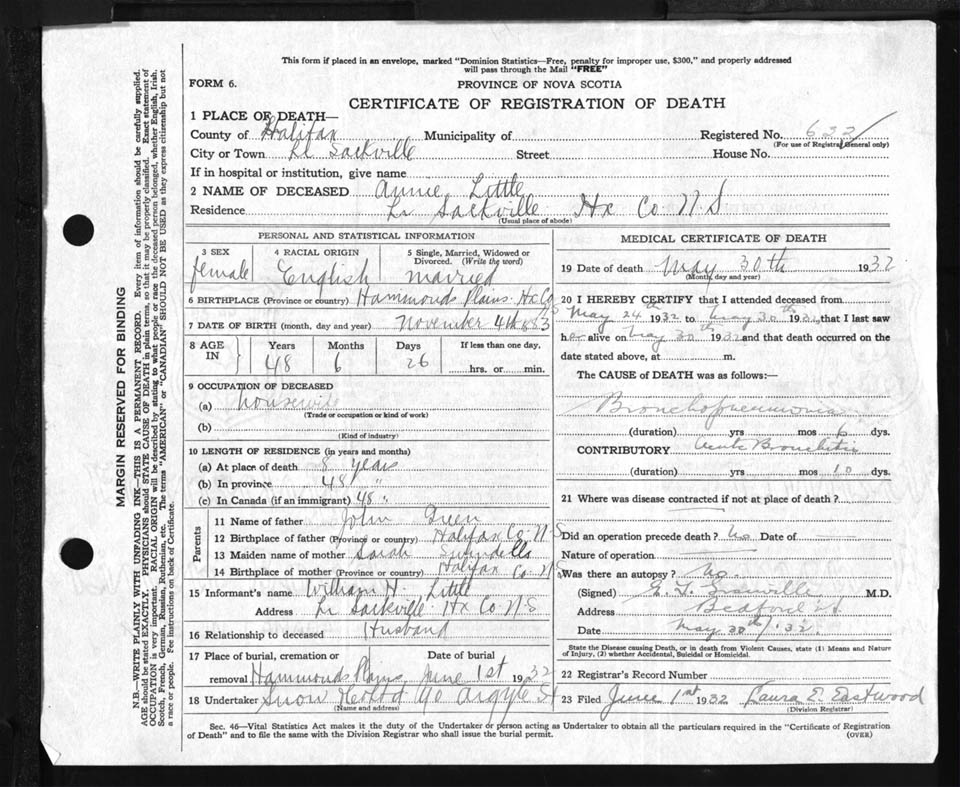 This form if placed in an envelope, marked "Dominion Statistics—Free, penalty for improper use, $300," and properly addressed
will pass through the Mail "FREE"
FORM 6.
PROVINCE OF NOVA SCOTIA
CERTIFICATE OF REGISTRATION OF DEATH
1 PLACE OF DEATH—
County of Halifax Municipality of Registered No.
(For use of Registrar General only)
City or Town Lr Sackville Street House No.
If in hospital or institution, give name
2 NAME OF DECEASED Annie Little
Residence Lr Sackville Hx Co N.S
(Usual place of abode)
PERSONAL AND STATISTICAL INFORMATION
3 SEX 4 RACIAL ORIGIN 5 Single, Married, Widowed or
Divorced. (Write the word)
female English married
6 BIRTHPLACE (Province or country) Hammonds Plains Hx Co NS
7 DATE OF BIRTH (month, day and year) November 4th 1883
8 AGE IN Years Months Days If less than one day,
48 6 26 hrs. or min.
9 OCCUPATION OF DECEASED
(a) housewife
(Trade or occupation or kind of work)
(b)
(Kind of industry)
10 LENGTH OF RESIDENCE (in years and months)
(a) At place of death 8 years
(b) In province 48 "
(c) In Canada (if an immigrant) 48 "
Parents
11 Name of father John Green
12 Birthplace of father (Province or country) Halifax Co. N S
13 Maiden name of mother Sarah Swindells
14 Birthplace of mother (Province or country) Halifax Co N S
15 Informant's name William H. Little
Address Lr Sackville Hx Co N S
16 Relationship to deceased Husband
17 Place of burial, cremation or Date of burial
removal Hammonds Plains June 1st 1932
18 Undertaker Snow 90 Argyle St
(Name and address)
MEDICAL CERTIFICATE OF DEATH
19 Date of death May 30th 1932
(Month, day and year)
20 I HEREBY CERTIFY that I attended deceased from
May 24th 1932 to May 30th 1932, that I last saw
her alive on May 30th 1932 and that death occurred on the
date stated above, at m.
The CAUSE of DEATH was as follows:—
Bronchopneumonia
(duration) yrs mos 6 dys.
CONTRIBUTORY Acute Bronchitis
(duration) yrs mos 10 dys.
21 Where was disease contracted if not at place of death?
Did an operation precede death? No Date of
Nature of operation
Was there an autopsy? No.
(Signed) M.D.
Address Bedford
Date May 30th/32.
State the Disease causing Death, or in death from Violent Causes, state (1) Means and Nature
of Injury, (2) whether Accidental, Suicidal or Homicidal.
22 Registrar's Record Number
23 Filed June 1st 1932 Laura E. Eastwood
(Division Registrar)
Sec. 46—Vital Statistics Act makes it the duty of the Undertaker or person acting as Undertaker to obtain all the particulars required in the "Certificate of Registration
of Death" and to file the same with the Division Registrar who shall issue the burial permit. (OVER)
MARGIN RESERVED FOR BINDING
N.B.—WRITE PLAINLY WITH UNFADING INK—THIS IS A PERMANENT RECORD. Every item of information should be carefully supplied.
AGE should be stated EXACTLY. PHYSICIANS should STATE CAUSE OF DEATH in plain terms, so that it may be properly classified. Exact statement of
OCCUPATION is very important. RACIAL ORIGIN will be described by stating to what people or race the deceased person belonged, whether English, Irish,
Scotch, French, German, Russian, Ruthenian, etc. The terms "AMERICAN" or "CANADIAN" SHOULD NOT BE USED as they express citizenship but not
a race or people. Fee instructions on back of Certificate.